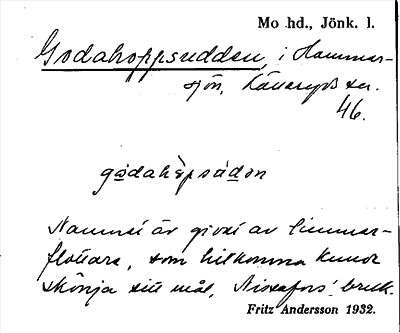 Mo hd., Jönk. l.
Godahoppsudden, i Hammar-
sjön, Kålleryds sn.
46.
godahòpsúdən
Namnet är givet av timmer-
flottare, som hitkomna kunde
skönja sitt mål, Nissafors' bruk.
Fritz Andersson 1932.